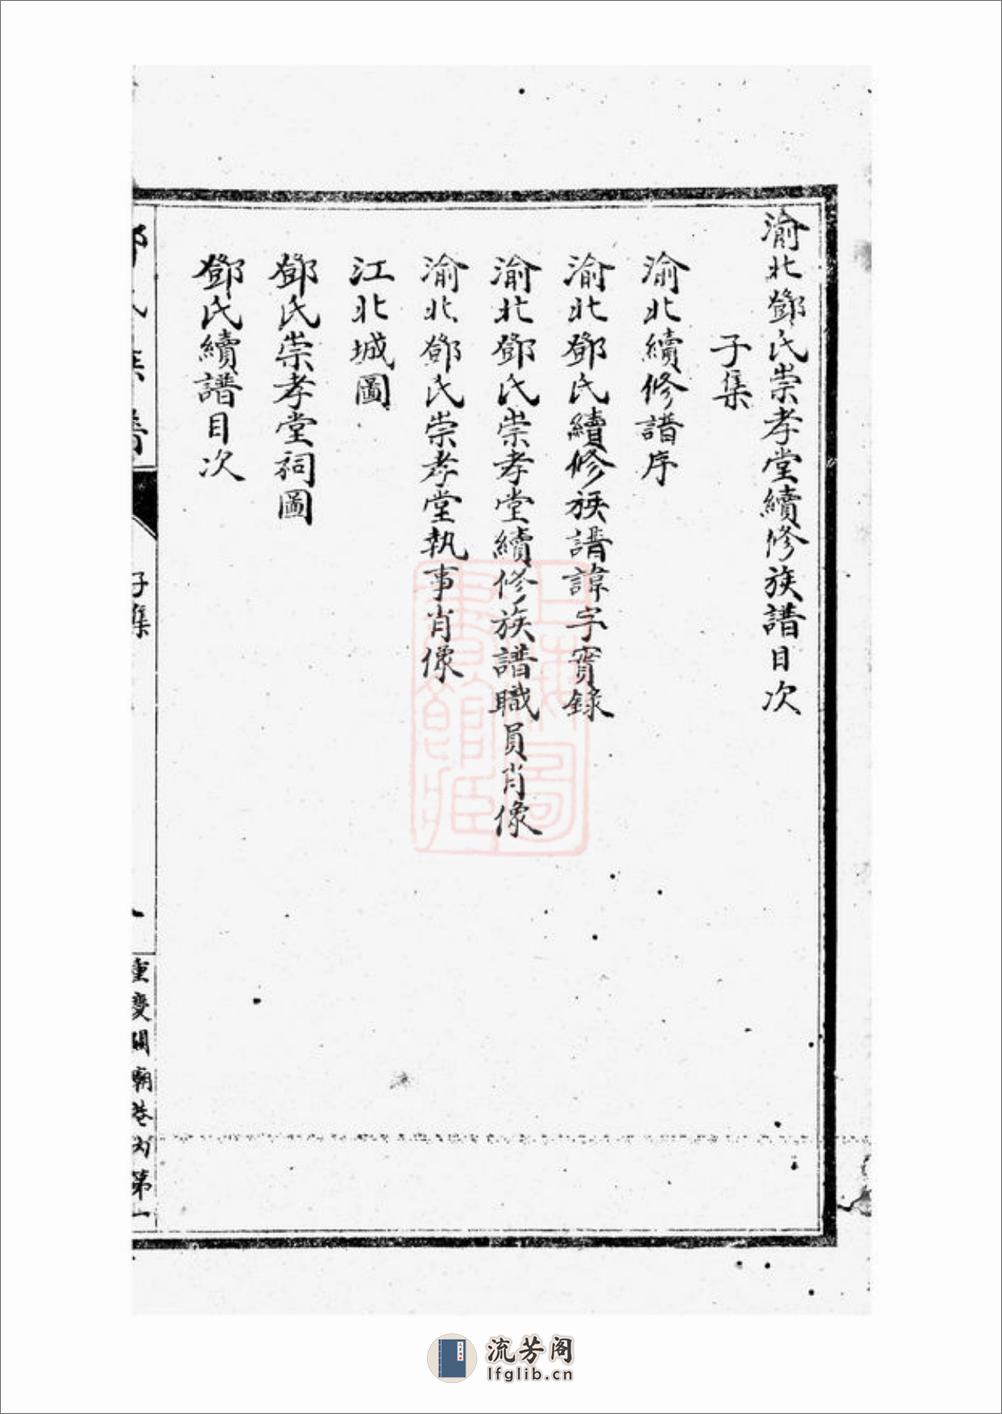 渝北鄧氏崇孝堂續修族譜目次
子集
渝北續修譜序
渝北鄧氏續修族譜諱字實錄
渝北鄧氏崇孝堂續修族譜職員肖像
渝北鄧氏崇孝堂執事肖像
江北城圖
鄧氏崇孝堂祠圖
鄧氏續譜目次
鄧氏族譜
子集
重慶關廟巷內第一
流芳阁
lfglib.cn